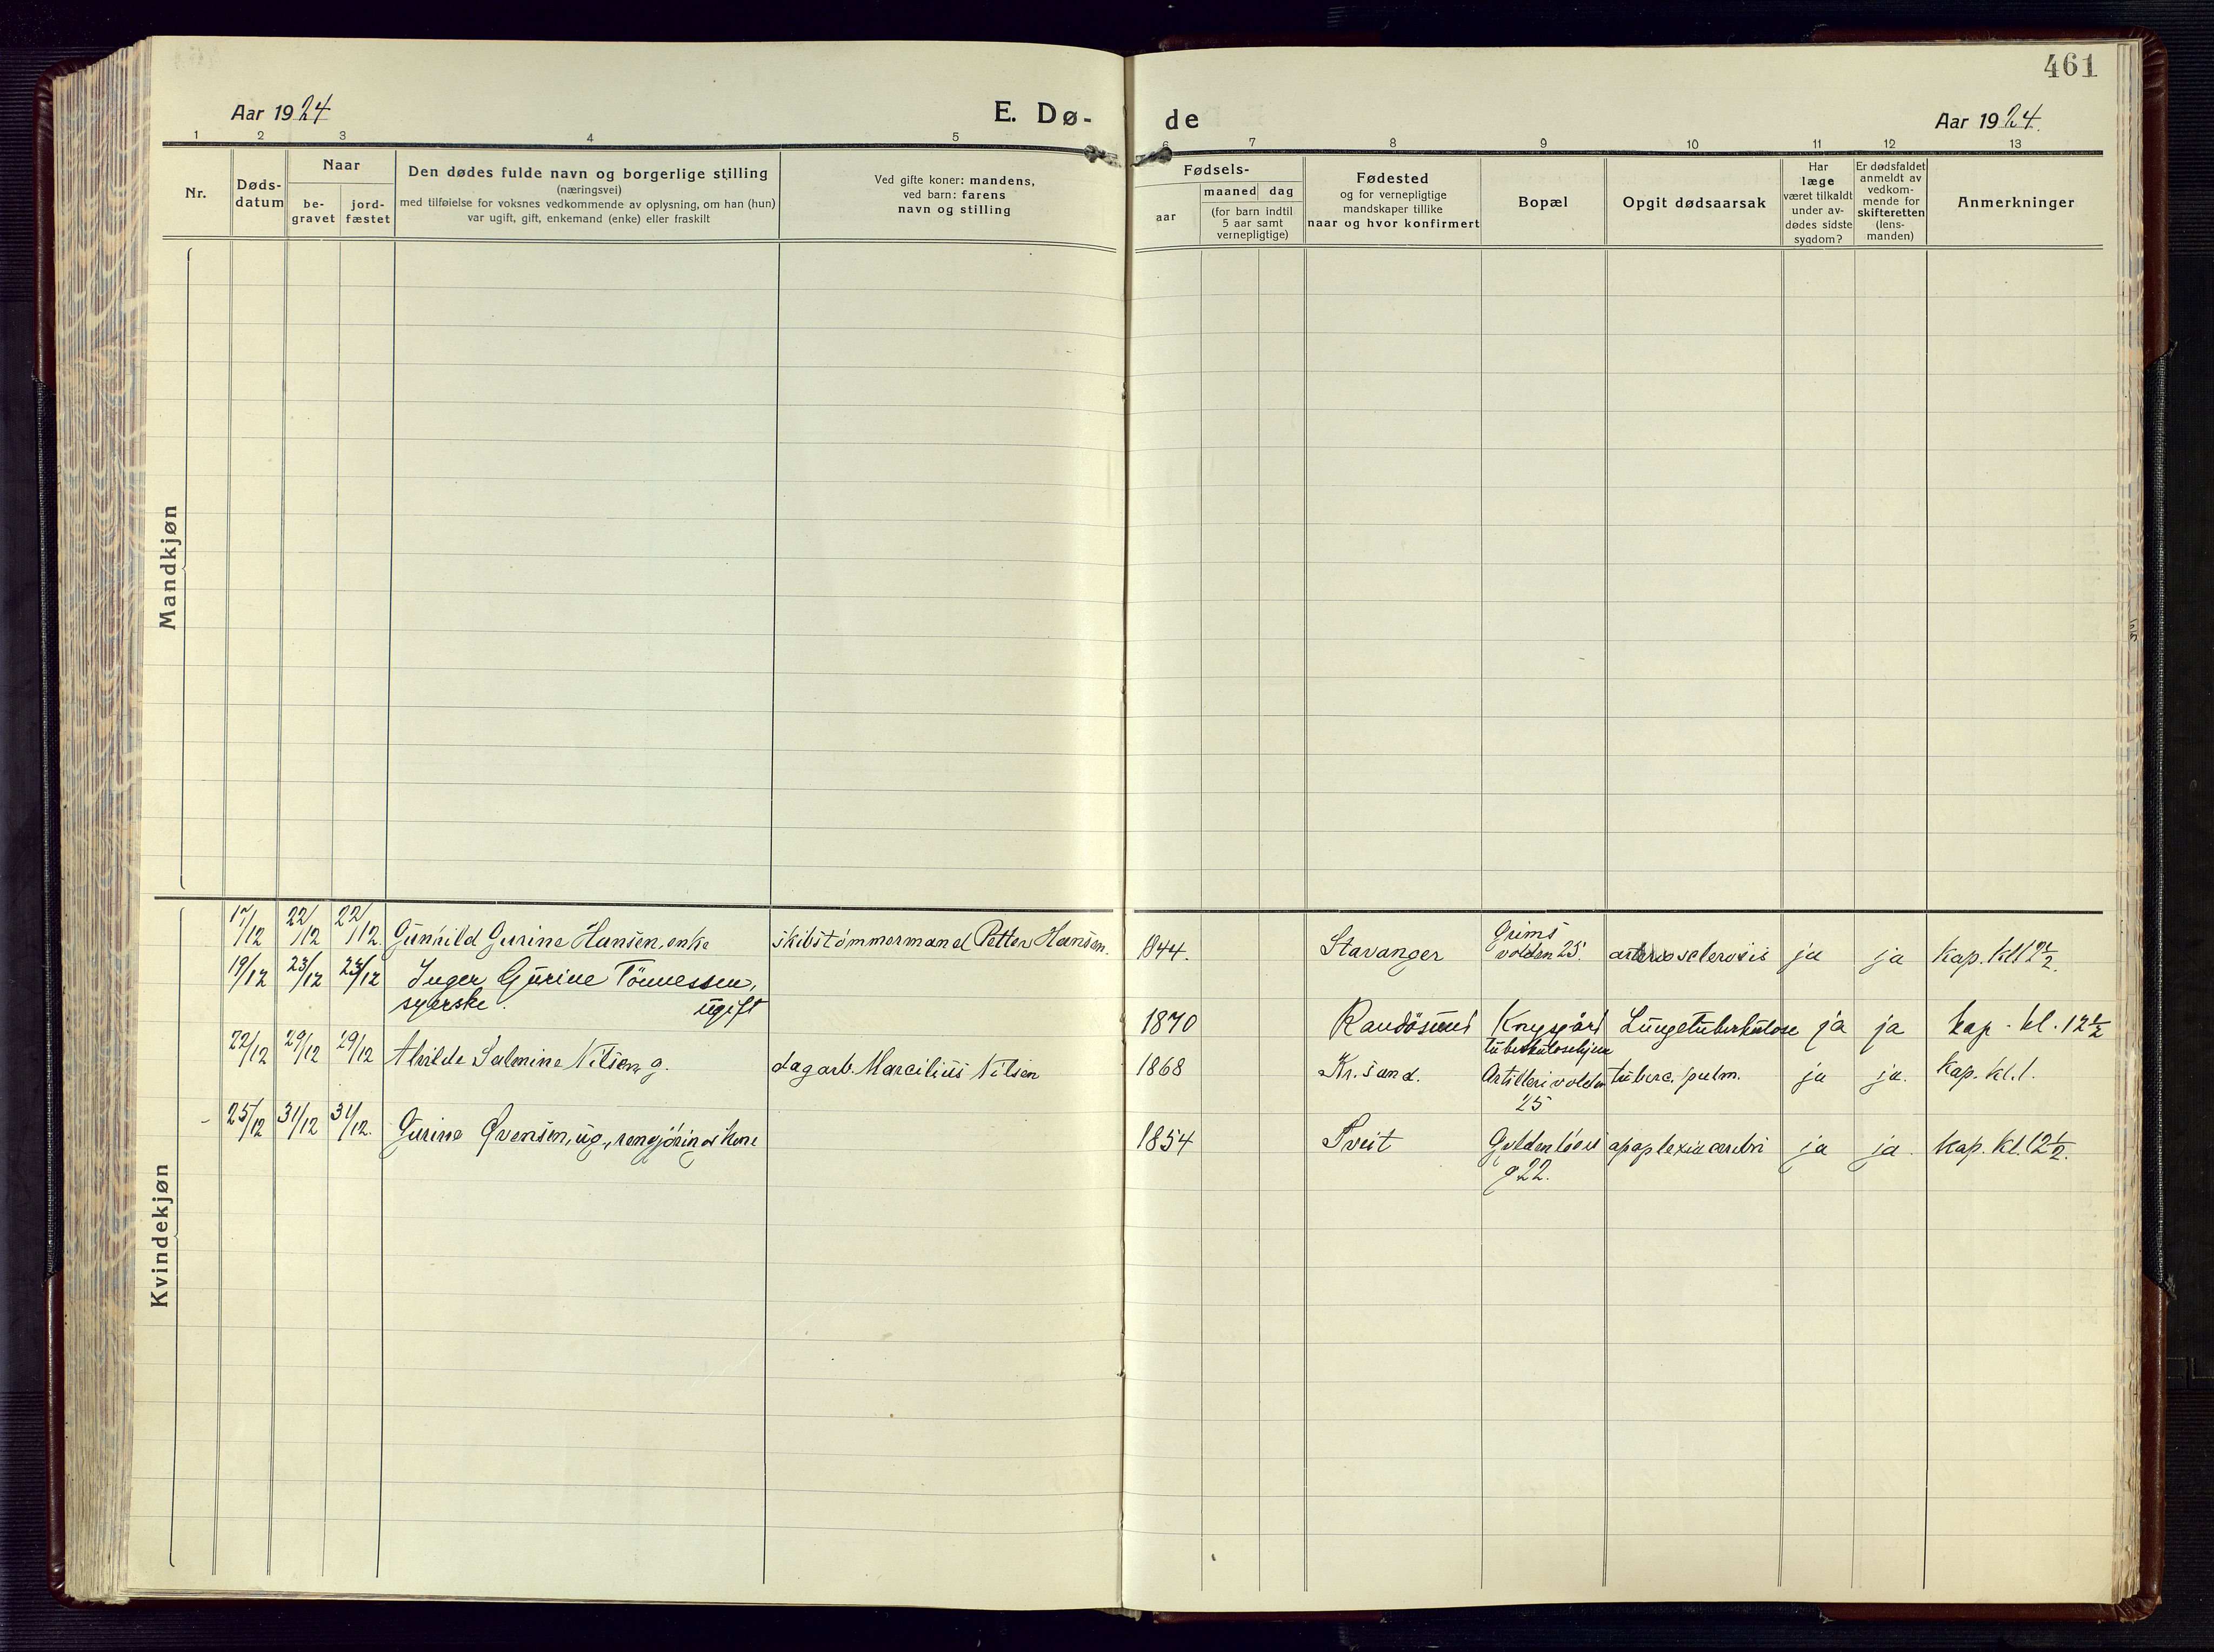 461
Aar 1924
E. Dø-
de
Aar 1924.
1 2 3 4 5 6 7 8 9 10 11 12 13
Nr.
Døds-
datum
Naar
be-
gravet
jord-
fæstet
Den dødes fulde navn og borgerlige stilling
(næringsvei)
med tilføielse for voksnes vedkommende av oplysning, om han (hun)
var ugift, gift, enkemand (enke) eller fraskilt
Ved gifte koner: mandens,
ved barn: farens
navn og stilling
Fødsels-
aar
maaned dag
(for barn indtil
5 aar samt
vernepligtige)
Fødested
og for vernepligtige
mandskaper tillike
naar og hvor konfirmert
Bopæl
Opgit dødsaarsak
Har
læge
været tilkaldt
under av-
dødes sidste
sygdom?
Er dødsfaldet
anmeldt av
vedkom-
mende for
skifteretten
(lens-
manden)
Anmerkninger
Mandkjøn
Kvindekjøn
17/12 22/12 22/12. Gunhild Gurine Hansen, enke skibstømmermand Petter Hansen. 1844. Stavanger Grims
volden 25. arteriosclerosis ja ja Kap. Kl 12 1/2.
19/12 23/12 23/12 Inger Gurine Tönnessen,
syerske. ugift
1870 Randösund Knysgård Lungetuberkulose ja ja kap. kl. 12 1/2
tuberkulosehjem
22/12 29/12 29/12 Alvilde Salmine Nilsen g. dagarb. Marcilius Nilsen 1868 Kr.sand. Artillerivolden tuberc. pulm. ja ja. Kap. Kl. 1.
25
- 25/12 31/12 31/12. Gurine Øvensen, ug., rengjøringskone 1854 Tveit Gyldenløves apoplexia cerebri ja ja. Kap. Kl. 12 1/2.
g 22.